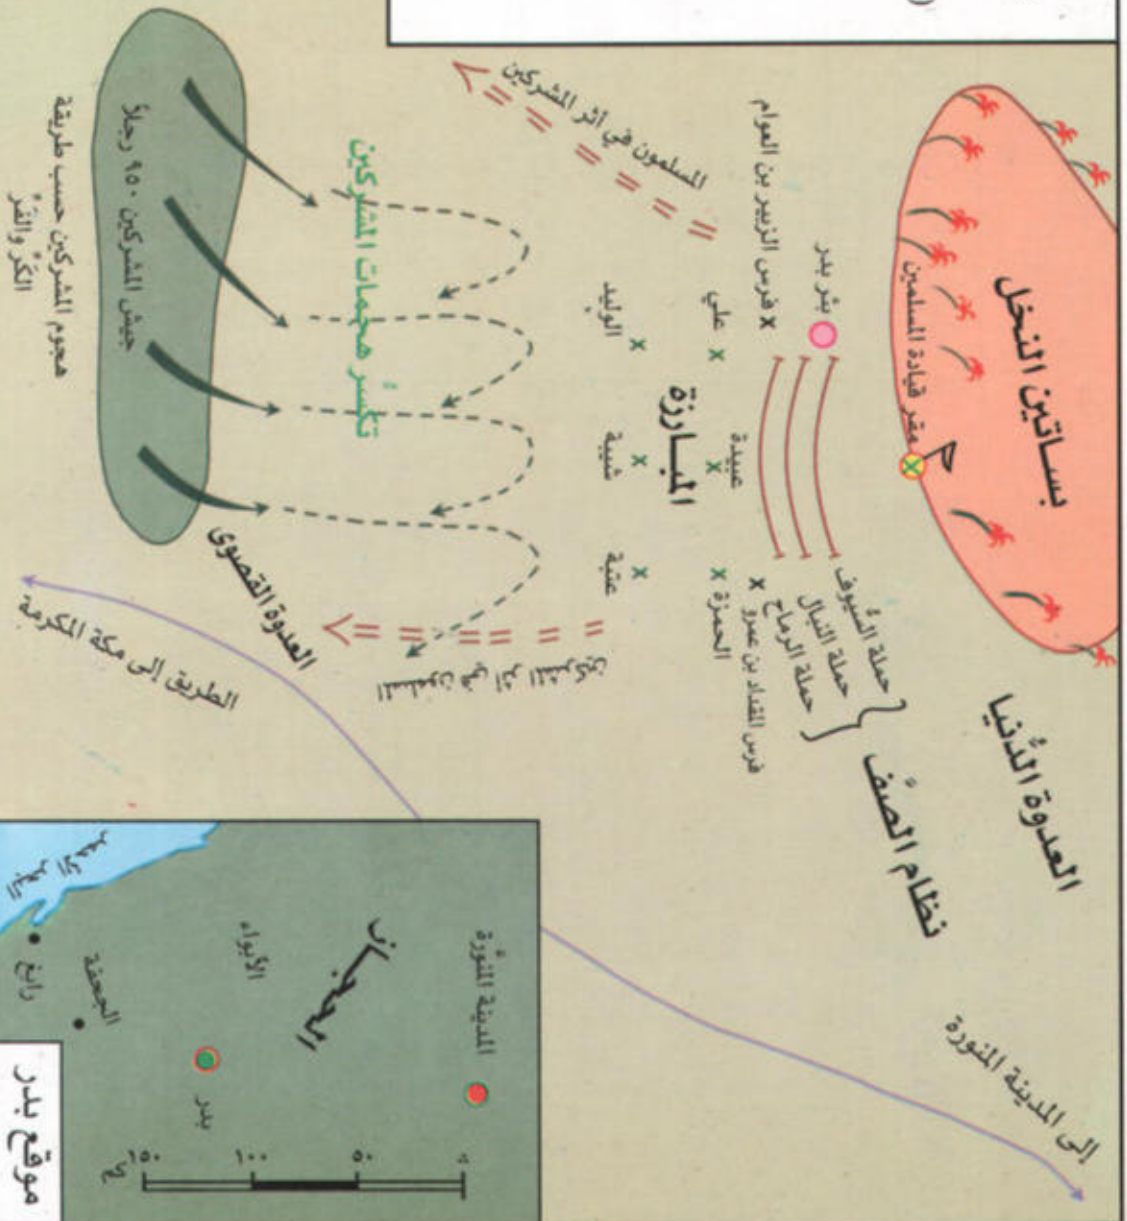 بساتين النخل
مقر قيادة المسلمين
العدوة الدُّنيا
نظام الصَّف
حملة السُّيوف
حملة النبال
حملة الرماح
بئر بدر
فرس الزبير بن العوام
فرس المقداد بن عمرو
علي
عبيدة
الحمزة
المبارزة
الوليد
شيبة
عتبة
المسلمون في أثر المشركين
المسلمون في أثر المشركين
تكسُّر هجمات المشركين
جيش المشركين ٩٥٠ رجلاً
هجوم المشركين حسب طريقة
الكَرِّ والفَرِّ
العدوة القصوى
الطريق إلى مكة المكرمة
إلى المدينة المنورة
المدينة المنوَّرة
الحجاز
الأبواء
بدر
الجحفة
رابغ
البحر الأحمر
٠
٥٠
١٠٠
١٥٠
موقع بدر